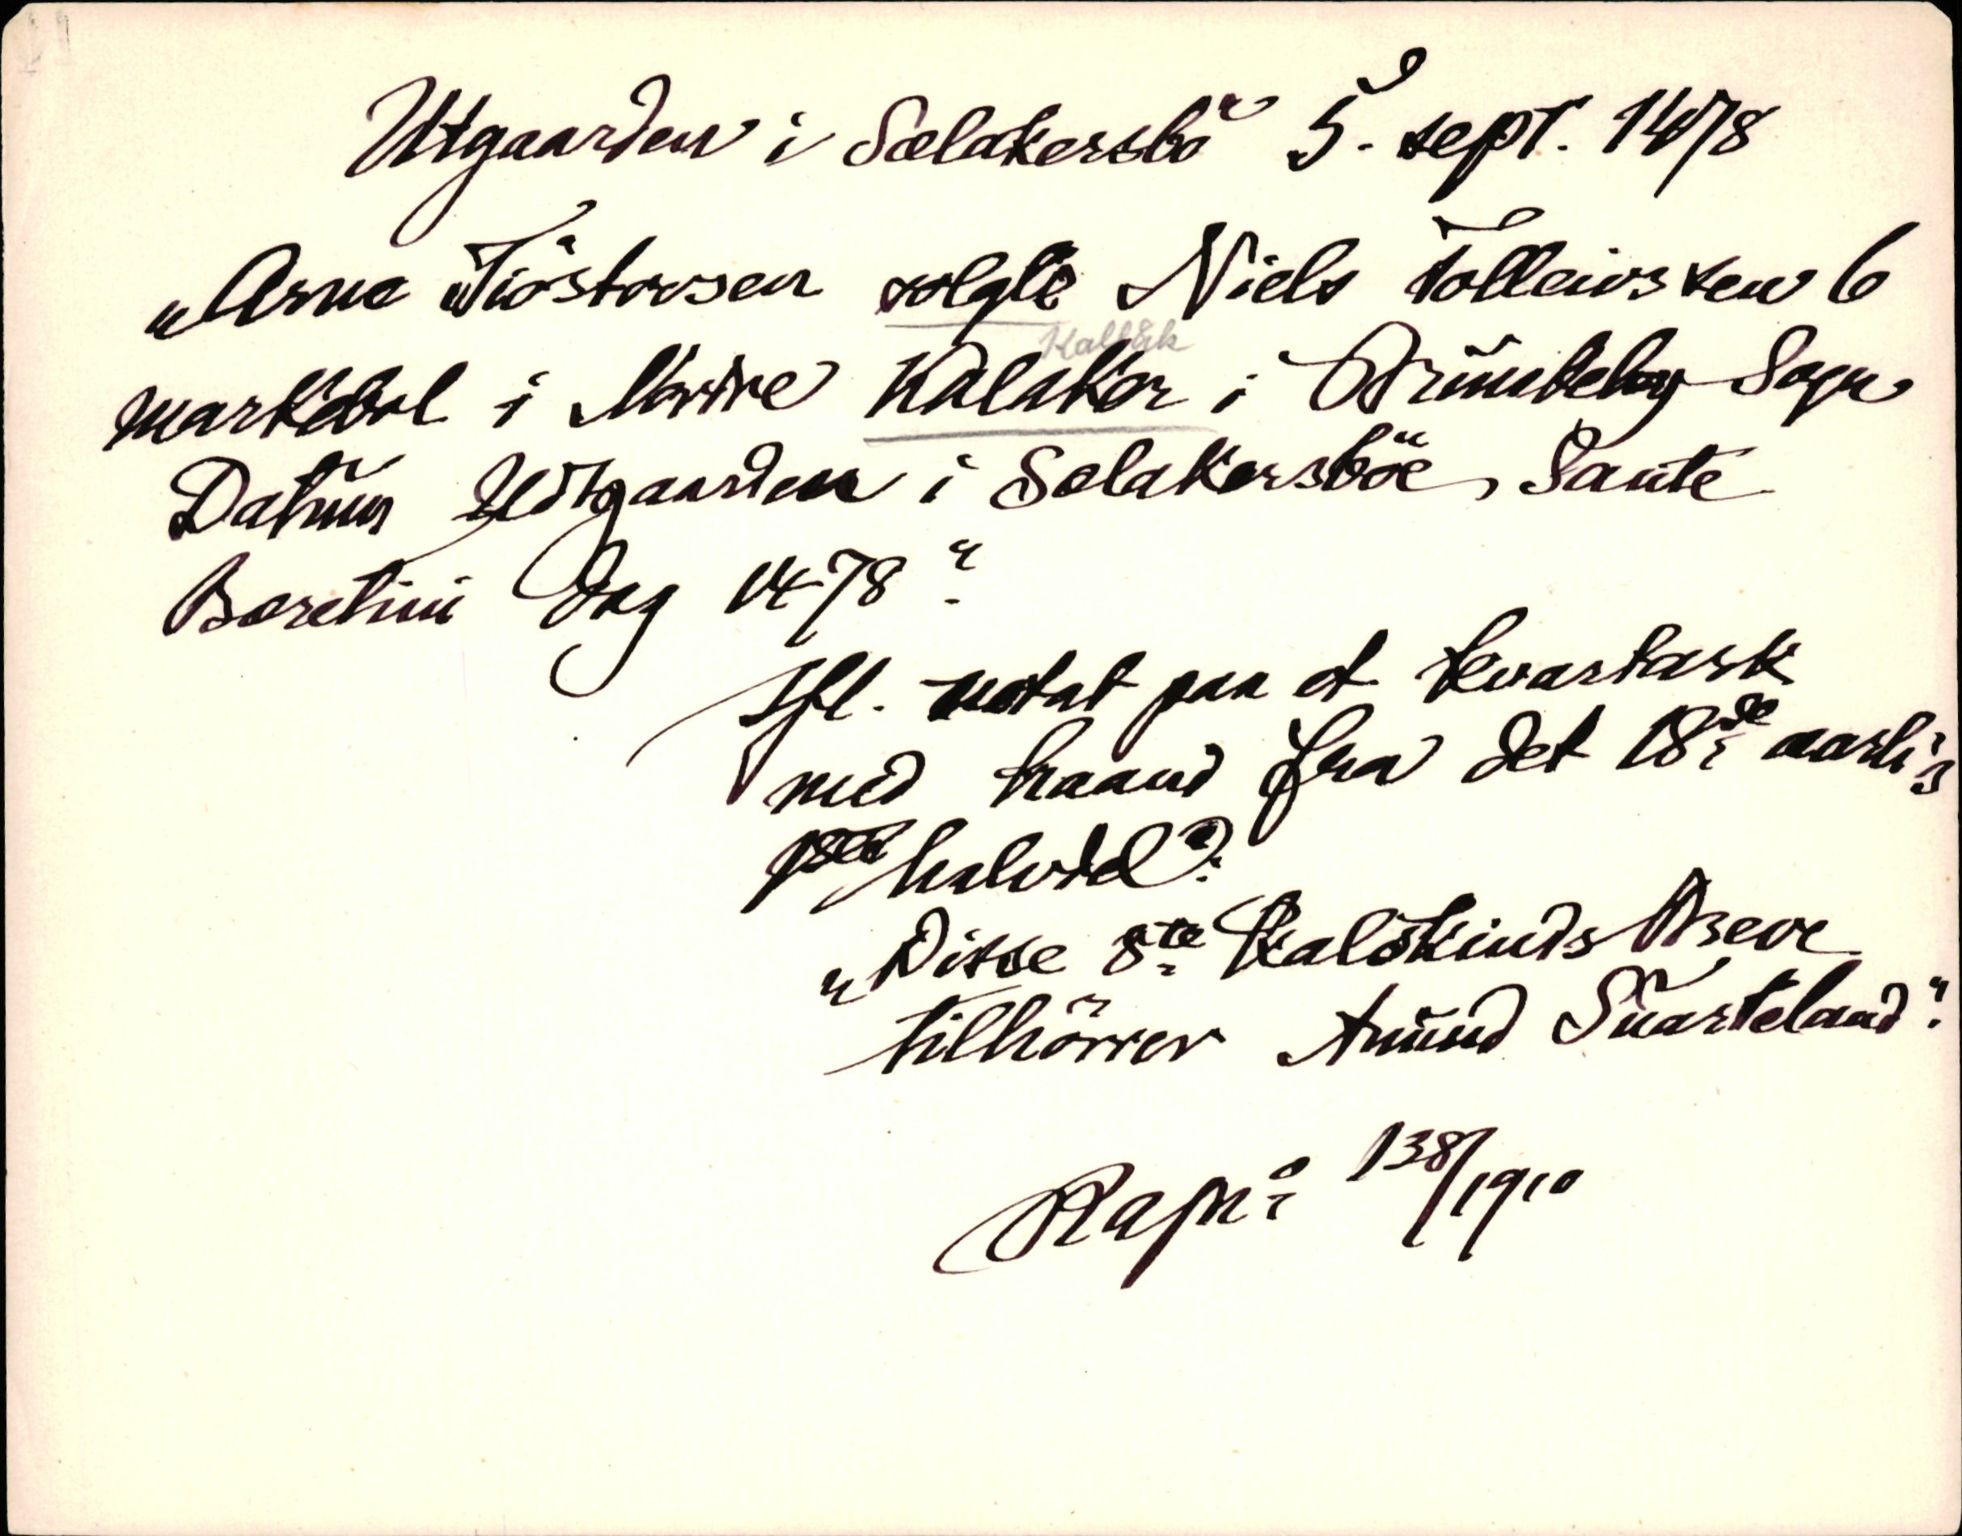 Utgaarden i Sælakersbö 5. sept. 1478
"Arne Tiöstorsen solgte Niels Tolleivssen 6
Kallåk
markebol i Nørdre Kalaker i Drümdelag Sogn
Datum Udtgaarden i Sælakersböe, Sante
Boretini Dag 1478".
Ifl. notat paa et kvartark
med haand fra det 18de aarh.s
halvdel?
"Disse 8te Kalskinds Breve
tilhörrer Amünd Süarteland".
Rapn: 138/1910